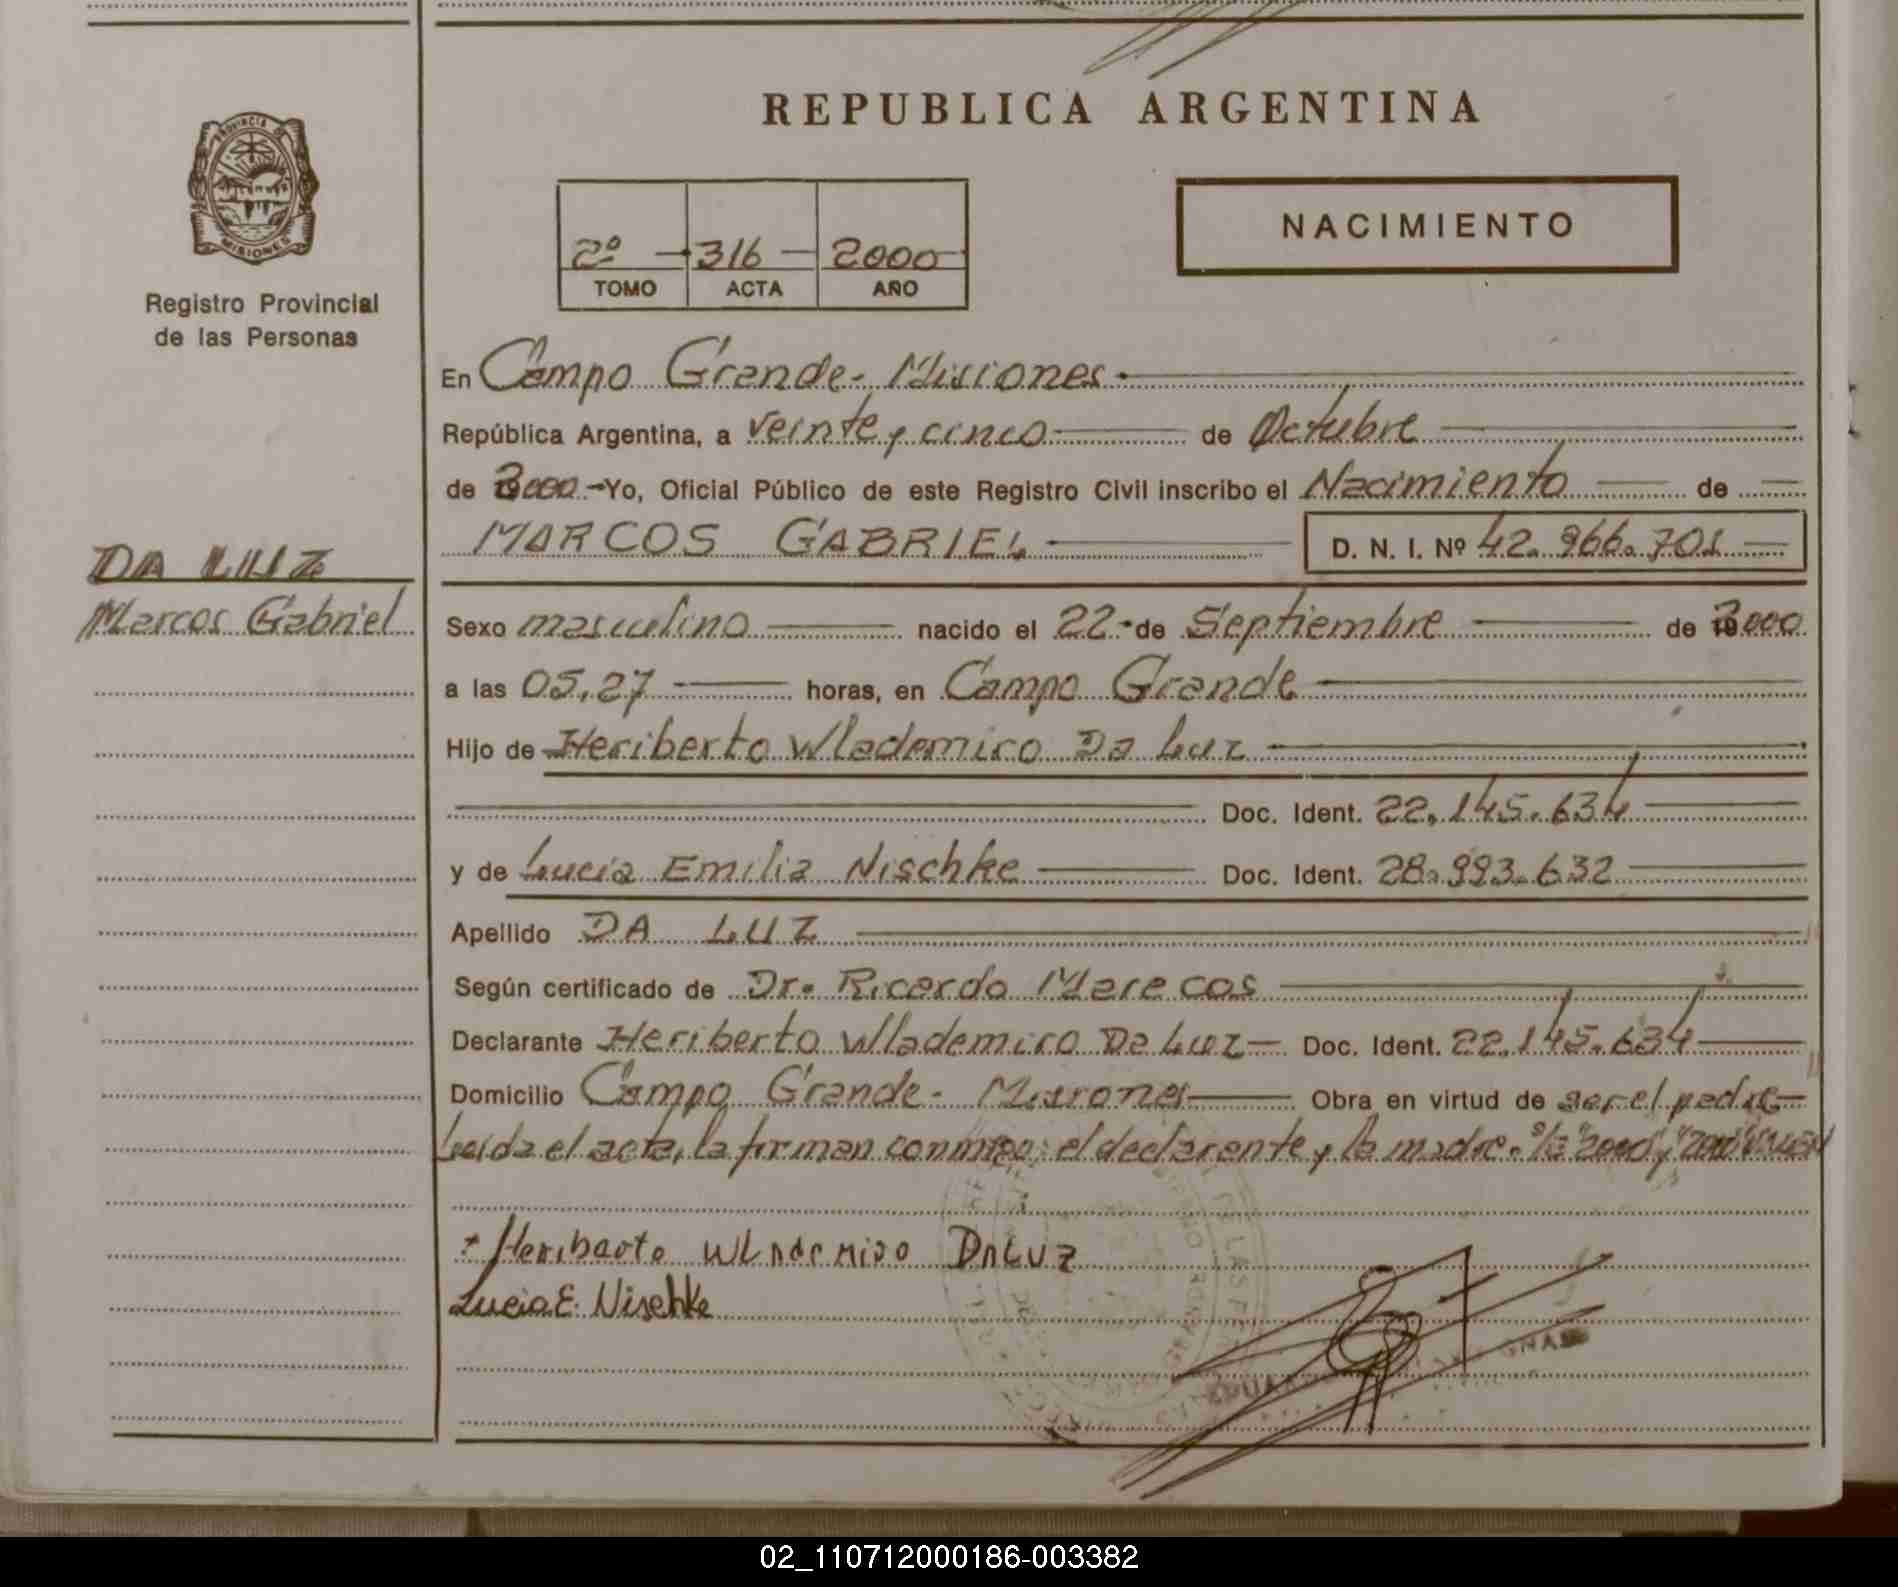 REPUBLICA ARGENTINA
PROVINCIA DE
MISIONES
Registro Provincial
de las Personas
NACIMIENTO
2º 316 2000
TOMO ACTA AÑO
En Campo Grande - Misiones
República Argentina, a veinte y cinco de Octubre
de 2000 - Yo, Oficial Público de este Registro Civil inscribo el Nacimiento de
MARCOS GABRIEL D. N. I. Nº 42.966.701
DA LUZ
Marcos Gabriel
Sexo masculino nacido el 22 de Septiembre de 2000
a las 05,27 horas, en Campo Grande
Hijo de Heriberto Wlademiro Da Luz
Doc. Ident. 22.145.634
y de Lucia Emilia Nischke Doc. Ident. 28.993.632
Apellido DA LUZ
Según certificado de Dr. Ricardo Marecos
Declarante Heriberto Wlademiro Da Luz Doc. Ident. 22.145.634
Domicilio Campo Grande - Misiones Obra en virtud de ser el padre
Leida el acta, la firman conmigo; el declarante y la madre. "2000" y "2000" VALEN
Heriberto Wlademiro DaLuz
Lucia E. Nischke
02_110712000186-003382